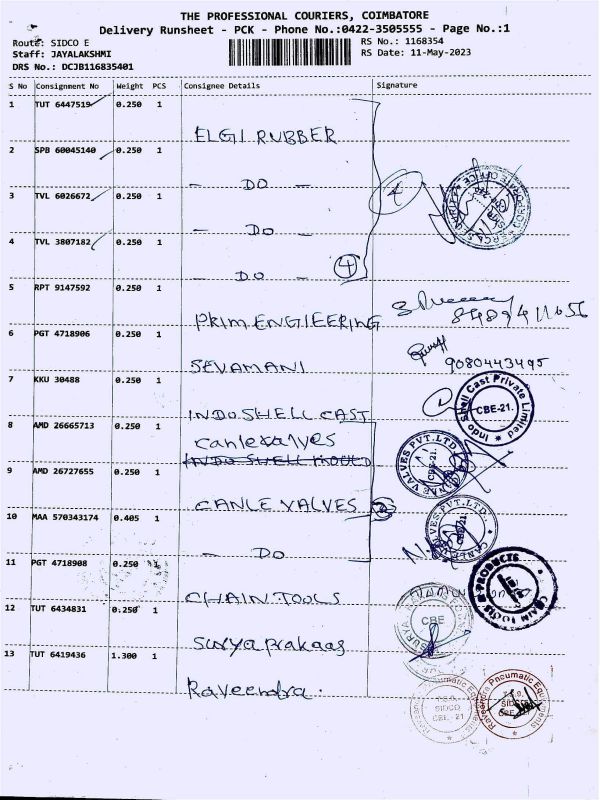 THE PROFESSIONAL COURIERS, COIMBATORE
Delivery Runsheet - PCK - Phone No.:0422-3505555 - Page No.:1
Route: SIDCO E
RS No.: 1168354
Staff: JAYALAKSHMI
RS Date: 11-May-2023
DRS No.: DCJB116835401
S No Consignment No Weight PCS Consignee Details Signature
1 TUT 6447519 0.250 1
ELGI RUBBER
2 SPB 60045140 0.250 1
- DO -
3 TVL 6026672 0.250 1
- DO -
4 TVL 3807182 0.250 1
- DO - 4
5 RPT 9147592 0.250 1
PRIM ENGIEERING
6 PGT 4718906 0.250 1
9080443495
SEVAMANI
7 KKU 30488 0.250 1
Indo Shell Cast Private Limited
CBE-21.
INDOSHELL CAST
8 AMD 26665713 0.250 1
Canlevalves
INDO SHELL MOULD
VALVES PVT.LTD.
CBE-21.
9 AMD 26727655 0.250 1
CANLE VALVES
10 MAA 570343174 0.405 1
VALVES.PVT.LTD.
CBE-21.
- DO
11 PGT 4718908 0.250 1
CHAIN TOOLS
CHAIN TOOLS & PRODUCTS
12 TUT 6434831 0.250 1
CBE
Suryaprakaas
13 TUT 6419436 1.300 1
Raveendra.
Raveendra Pneumatic Equipments
SIDCO
CBE.-21